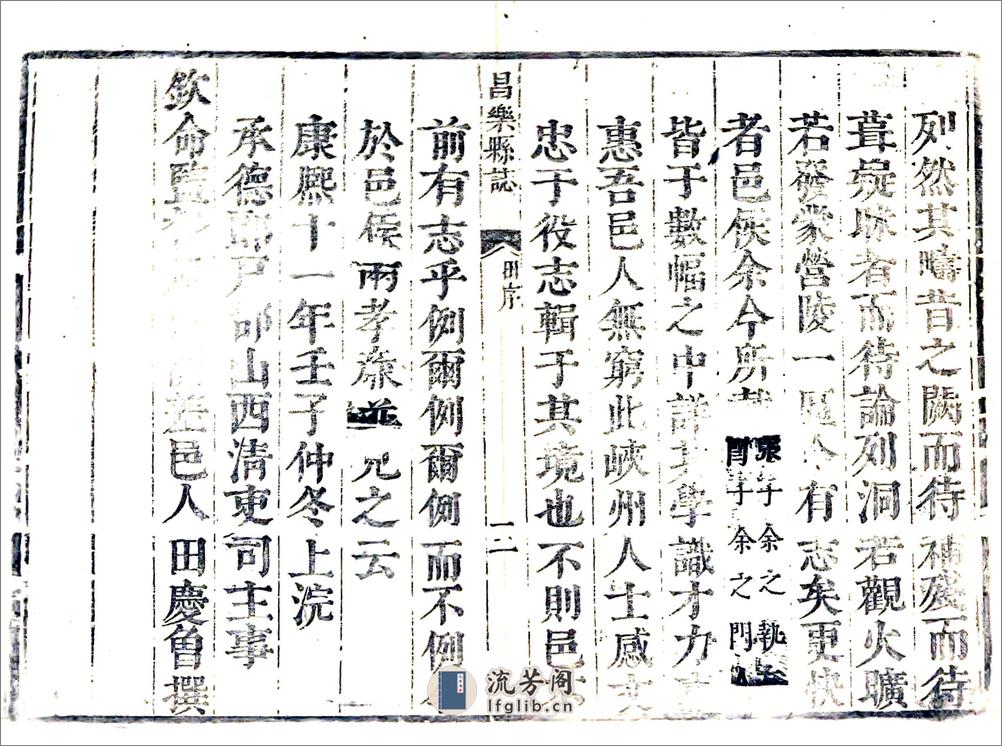 列然其疇昔之闕而待補殘而待
葺彙咏者而待論列洞若觀火曠
若發蒙營陵一區今有志矣更快
者邑侯余今所
年余之執
年余之門人
皆于數幅之中詳其學識才力
惠吾邑人無窮此峽州人士感
忠于役志輯于其境也不則邑
前有志乎例爾例爾例而不例
於邑侯兩孝廉並見之云
康熙十一年壬子仲冬上浣
承德郎戶部山西清吏司主事
欽命監 差邑人田慶曾撰
昌樂縣誌
田序
二
流芳阁
lfglib.cn